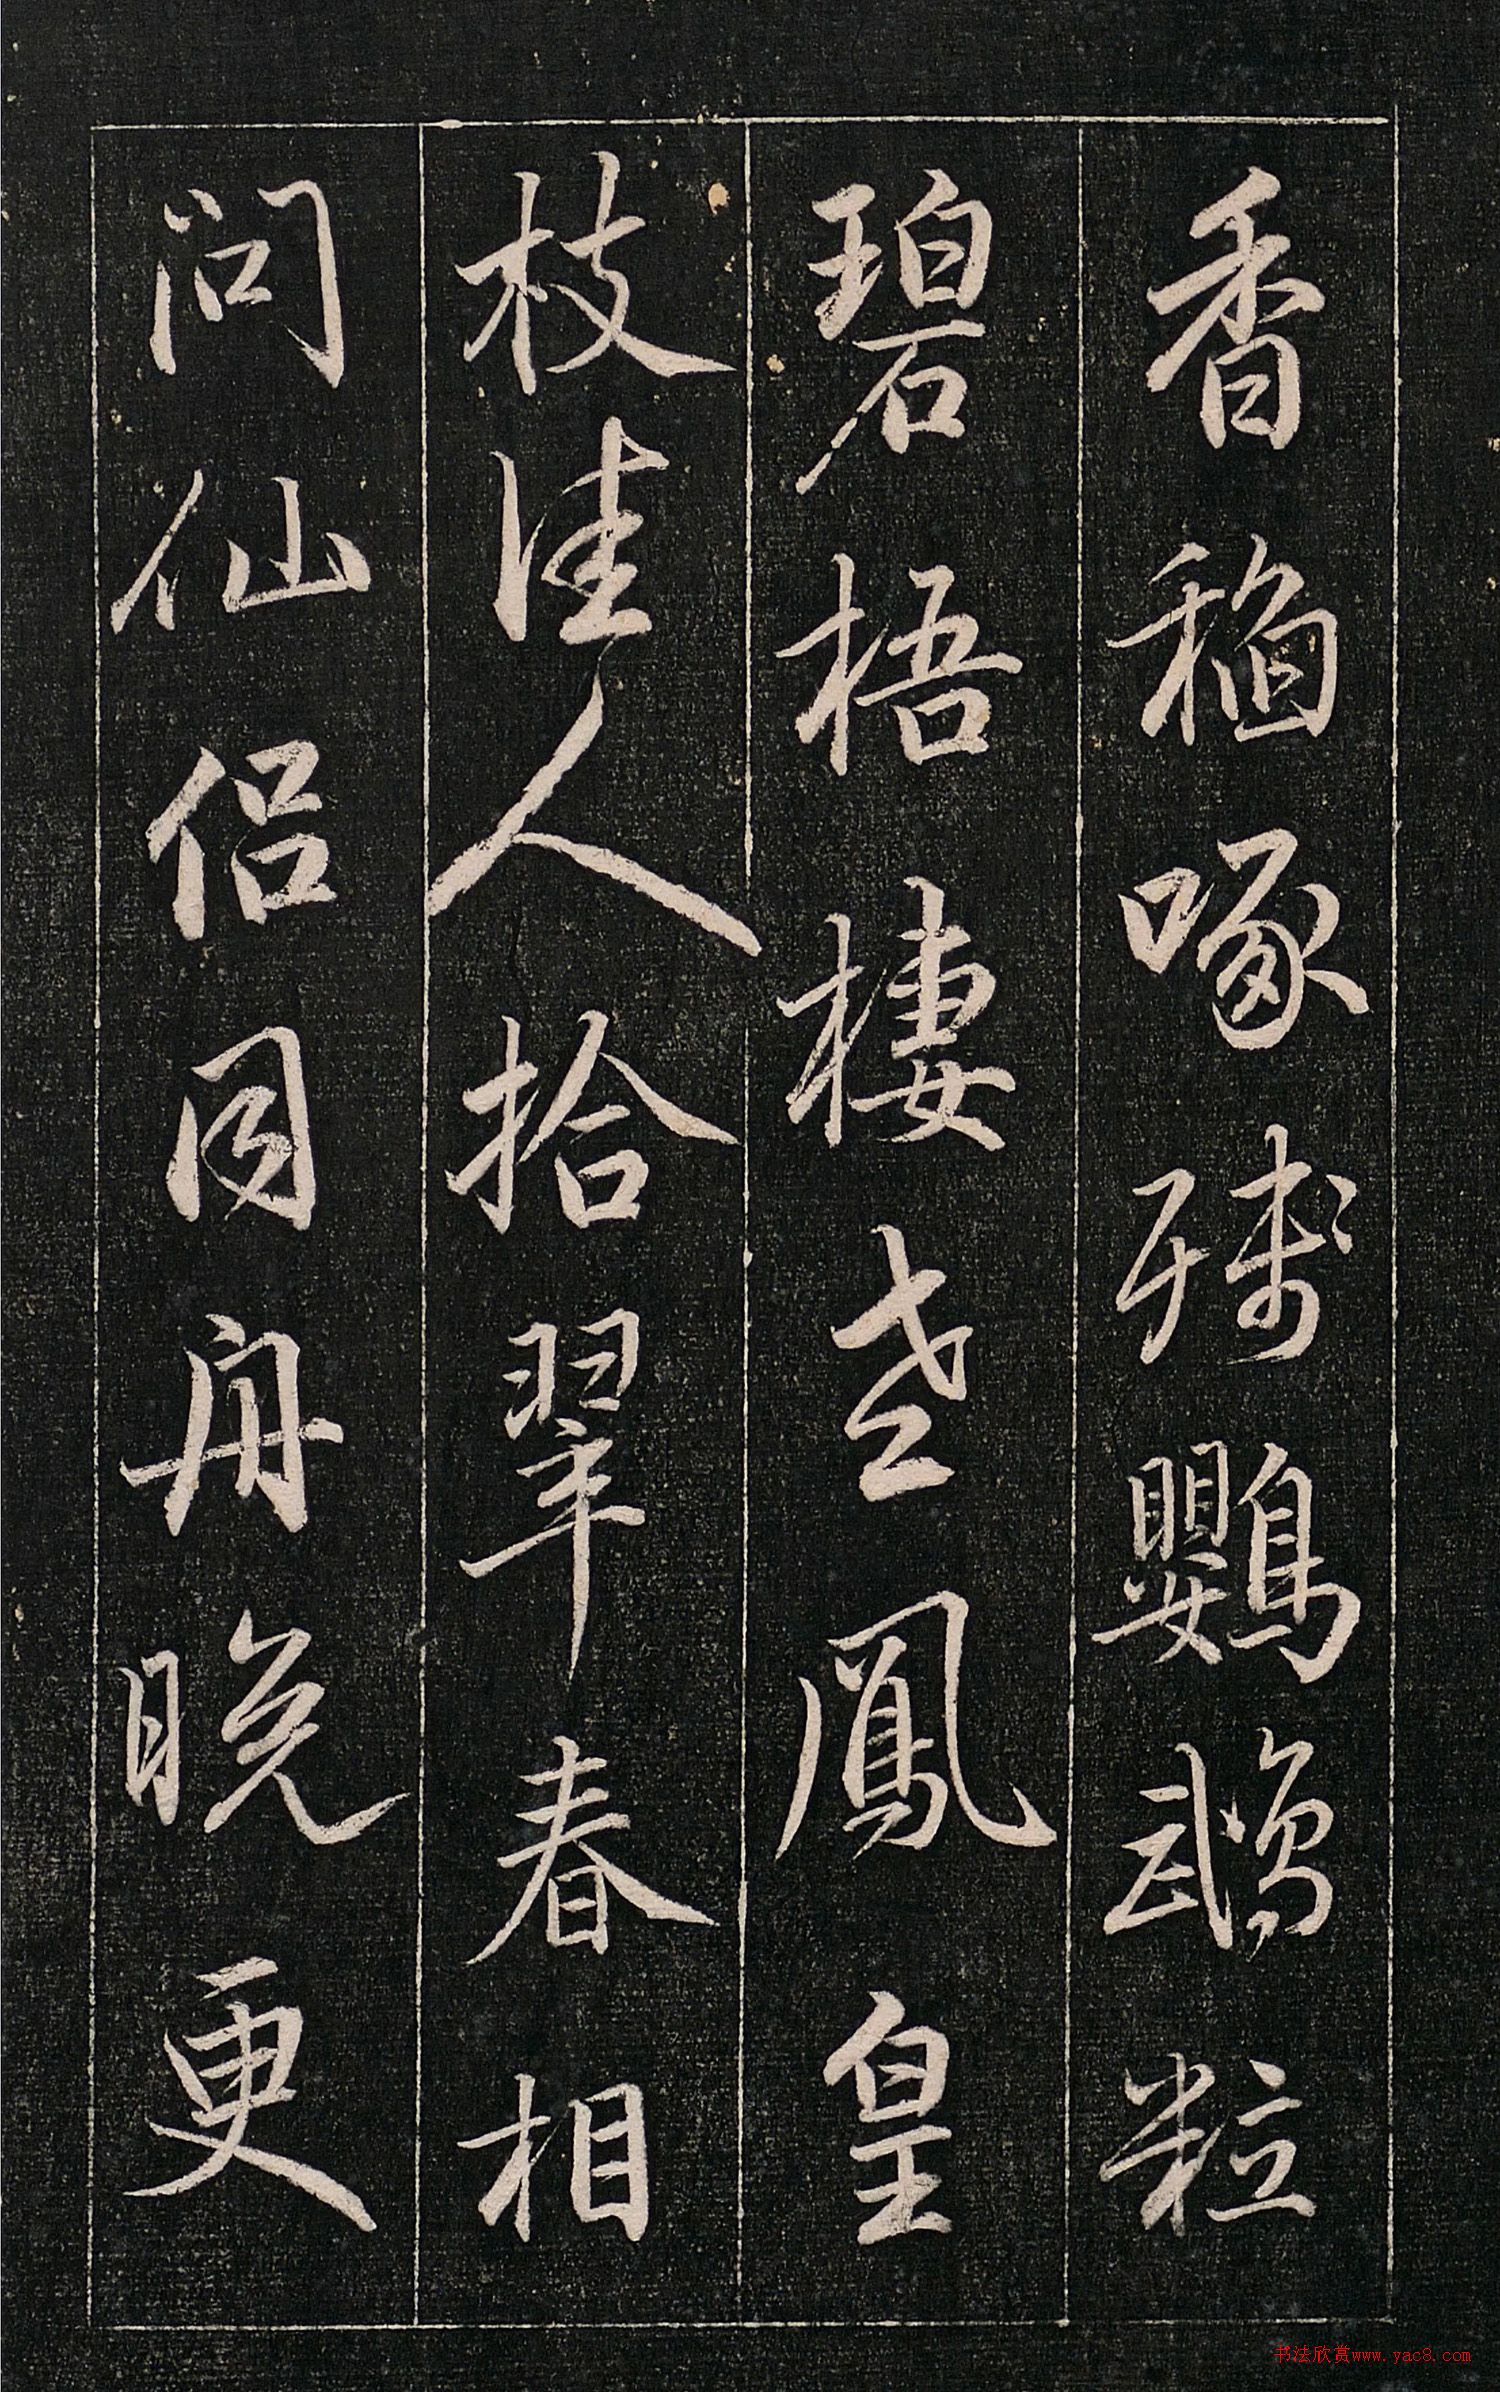 香稻啄殘鸚鵡粒
碧梧棲老鳳皇
枝佳人拾翠春相
問仙侶同舟晚更
书法欣赏www.yac8.com